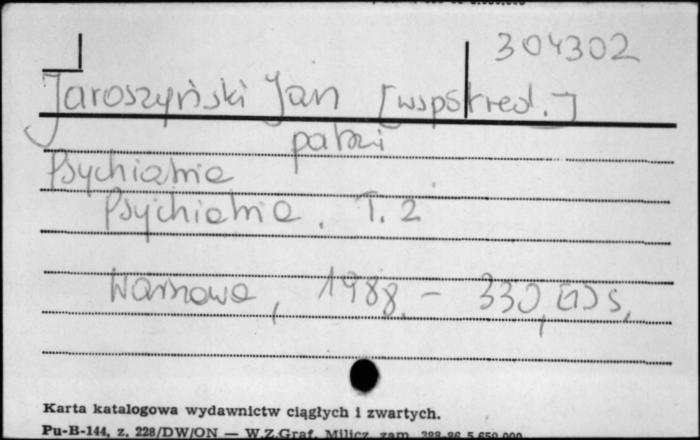 304302
Jaroszyński Jan [współred.]
patrz
Psychiatria
Psychiatria. T. 2
Warszawa, 1988. – 330, [1] s.
Karta katalogowa wydawnictw ciągłych i zwartych.
Pu-B-144, z. 228/DW/ON — W.Z.Graf. Milicz, zam.